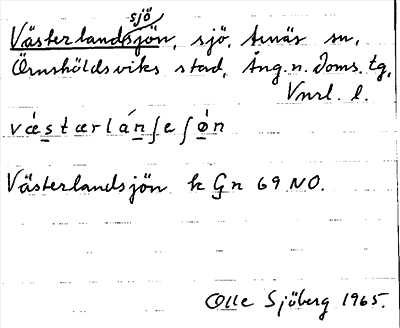 sjö
Västerlandsjön, sjö, Arnäs sn,
Örnsköldsviks stad, Ång. n. doms. tg,
Vnrl. l.
væstærlánʃeʃøn
Västerlandsjön k Gn 69 NO.
Olle Sjöberg 1965.